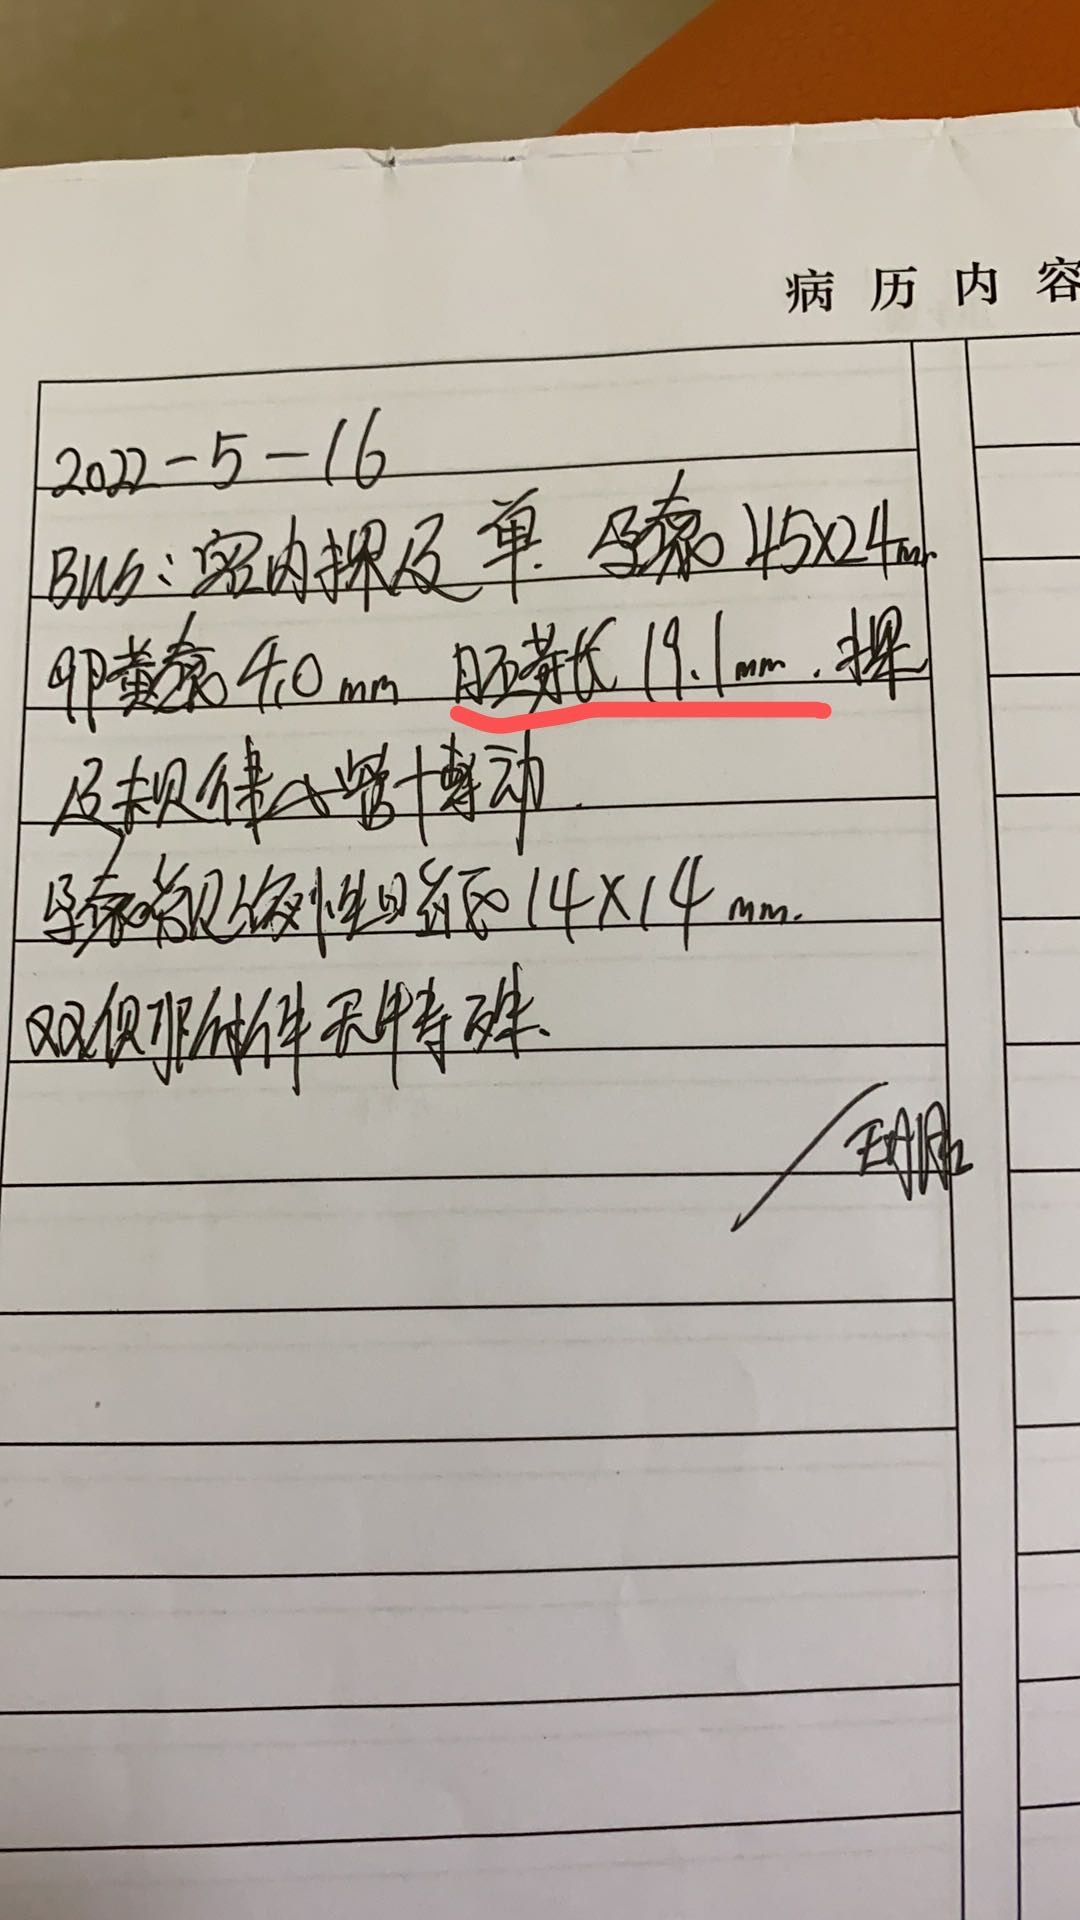 病历内容
2022-5-16
BUS：宫内探及单 孕囊45x24mm
卵黄囊4.0mm 胚芽长19.1mm.探
及规律心管搏动.
孕囊旁见 14X14mm.
双侧附件未特殊.